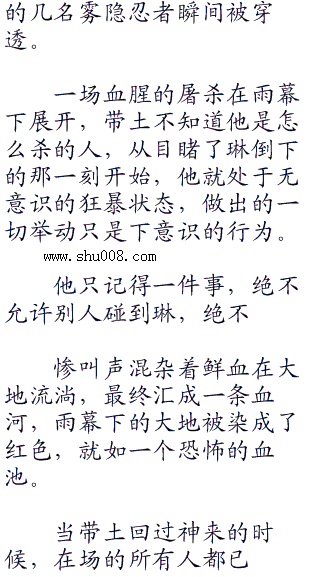 的几名雾隐忍者瞬间被穿
透。
一场血腥的屠杀在雨幕
下展开，带土不知道他是怎
么杀的人，从目睹了琳倒下
的那一刻开始，他就处于无
意识的狂暴状态，做出的一
切举动只是下意识的行为。
www.shu008.com
他只记得一件事，绝不
允许别人碰到琳，绝不
惨叫声混杂着鲜血在大
地流淌，最终汇成一条血
河，雨幕下的大地被染成了
红色，就如一个恐怖的血
池。
当带土回过神来的时
候，在场的所有人都已